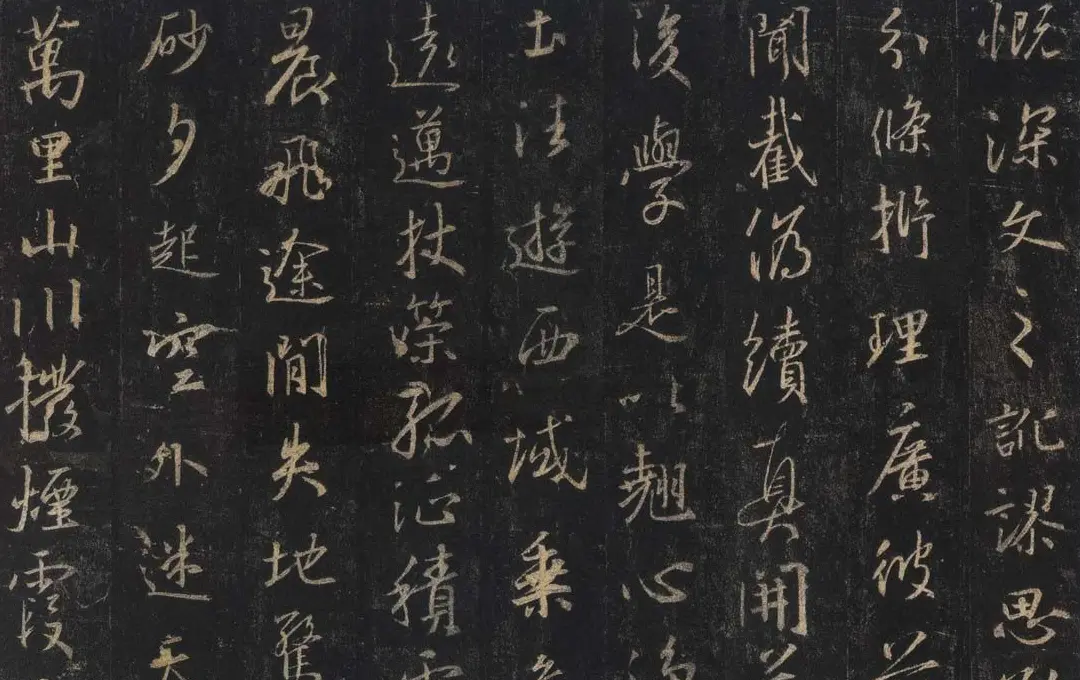 慨深文之訛謬思
分條析理廣彼
聞截偽續真開茲
後學是以翹心淨
土往遊西域乘
遠邁杖策孤征積
晨飛途間失地驚
砂夕起空外迷天
萬里山川撥煙霞